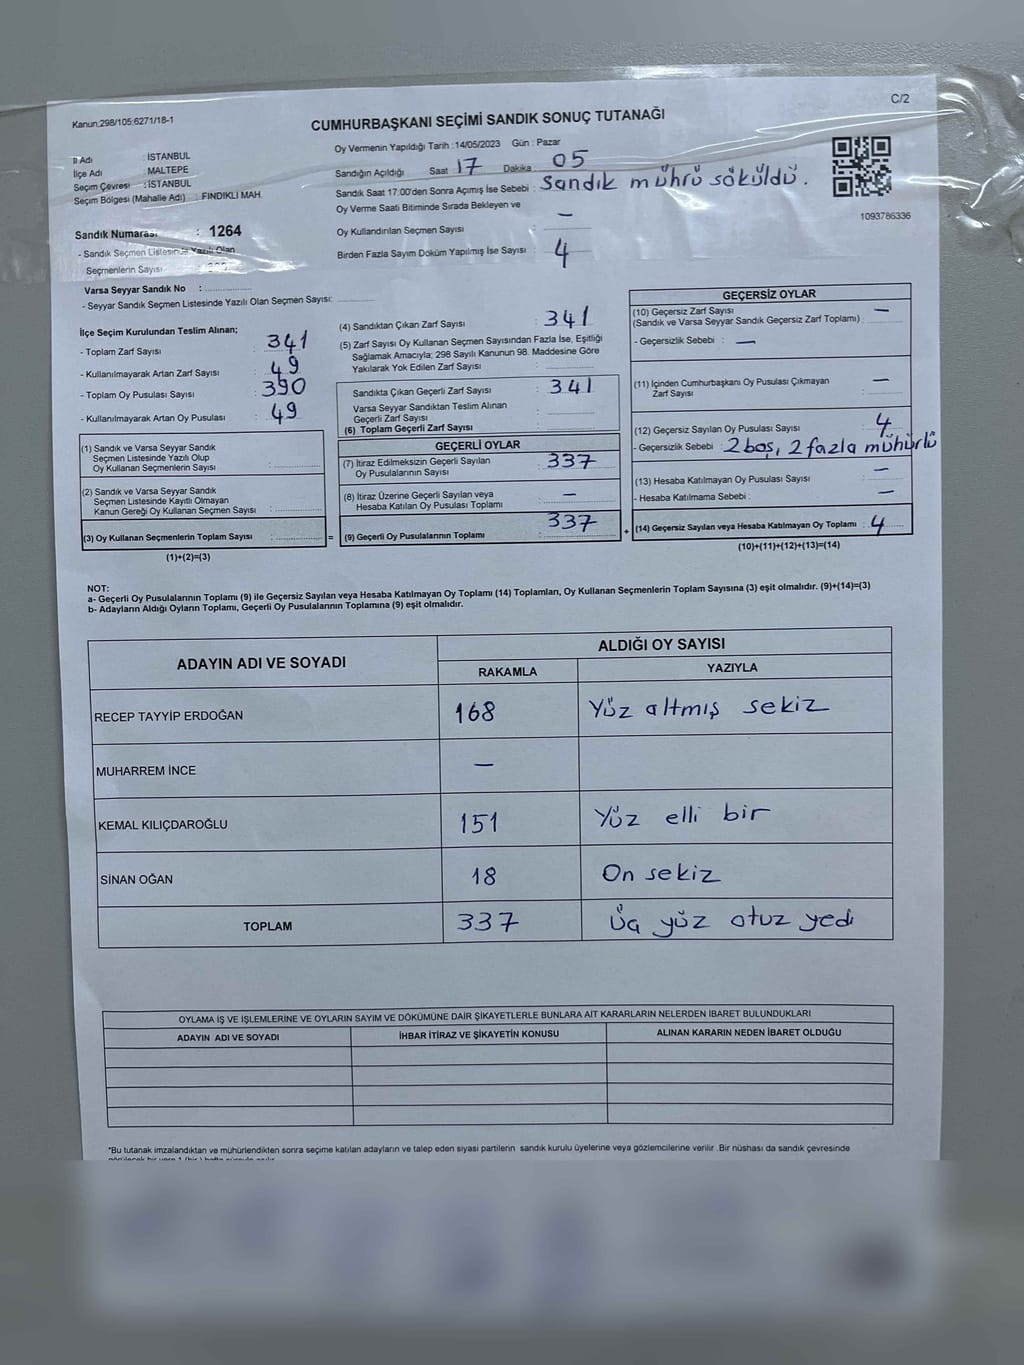 C/2
Kanun:298/105;6271/18-1
CUMHURBAŞKANI SEÇİMİ SANDIK SONUÇ TUTANAĞI
Oy Vermenin Yapıldığı Tarih :14/05/2023 Gün : Pazar
İl Adı : İSTANBUL
İlçe Adı : MALTEPE
Seçim Çevresi : İSTANBUL
Seçim Bölgesi (Mahalle Adı) : FINDIKLI MAH.
Sandığın Açıldığı Saat 17 Dakika 05
Sandık Saat 17:00'den Sonra Açımış İse Sebebi : Sandık mührü söküldü.
Oy Verme Saati Bitiminde Sırada Bekleyen ve
Oy Kullandırılan Seçmen Sayısı : —
Birden Fazla Sayım Döküm Yapılmış İse Sayısı : 4
1093786336
Sandık Numarası : 1264
- Sandık Seçmen Listesinde Yazılı Olan
Seçmenlerin Sayısı :
Varsa Seyyar Sandık No :
- Seyyar Sandık Seçmen Listesinde Yazılı Olan Seçmen Sayısı:
İlçe Seçim Kurulundan Teslim Alınan;
- Toplam Zarf Sayısı : 341
- Kullanılmayarak Artan Zarf Sayısı : 49
- Toplam Oy Pusulası Sayısı : 390
- Kullanılmayarak Artan Oy Pusulası : 49
(1) Sandık ve Varsa Seyyar Sandık
Seçmen Listesinde Yazılı Olup
Oy Kullanan Seçmenlerin Sayısı :
(2) Sandık ve Varsa Seyyar Sandık
Seçmen Listesinde Kayıtlı Olmayan
Kanun Gereği Oy Kullanan Seçmen Sayısı :
(3) Oy Kullanan Seçmenlerin Toplam Sayısı :
(1)+(2)=(3)
=
(4) Sandıktan Çıkan Zarf Sayısı : 341
(5) Zarf Sayısı Oy Kullanan Seçmen Sayısından Fazla İse, Eşitliği
Sağlamak Amacıyla; 298 Sayılı Kanunun 98. Maddesine Göre
Yakılarak Yok Edilen Zarf Sayısı :
Sandıkta Çıkan Geçerli Zarf Sayısı : 341
Varsa Seyyar Sandıktan Teslim Alınan
Geçerli Zarf Sayısı :
(6) Toplam Geçerli Zarf Sayısı :
GEÇERLİ OYLAR
(7) İtiraz Edilmeksizin Geçerli Sayılan : 337
Oy Pusulalarının Sayısı
(8) İtiraz Üzerine Geçerli Sayılan veya : —
Hesaba Katılan Oy Pusulası Toplamı
(9) Geçerli Oy Pusulalarının Toplamı : 337
+
GEÇERSİZ OYLAR
(10) Geçersiz Zarf Sayısı
(Sandık ve Varsa Seyyar Sandık Geçersiz Zarf Toplamı) : —
- Geçersizlik Sebebi : —
(11) İçinden Cumhurbaşkanı Oy Pusulası Çıkmayan : —
Zarf Sayısı
(12) Geçersiz Sayılan Oy Pusulası Sayısı : 4
- Geçersizlik Sebebi : 2 boş, 2 fazla mühürlü
(13) Hesaba Katılmayan Oy Pusulası Sayısı : —
- Hesaba Katılmama Sebebi : —
(14) Geçersiz Sayılan veya Hesaba Katılmayan Oy Toplamı : 4
(10)+(11)+(12)+(13)=(14)
NOT:
a- Geçerli Oy Pusulalarının Toplamı (9) ile Geçersiz Sayılan veya Hesaba Katılmayan Oy Toplamı (14) Toplamları, Oy Kullanan Seçmenlerin Toplam Sayısına (3) eşit olmalıdır. (9)+(14)=(3)
b- Adayların Aldığı Oyların Toplamı, Geçerli Oy Pusulalarının Toplamına (9) eşit olmalıdır.
ADAYIN ADI VE SOYADI ALDIĞI OY SAYISI
RAKAMLA YAZIYLA
RECEP TAYYİP ERDOĞAN 168 Yüz altmış sekiz
MUHARREM İNCE —
KEMAL KILIÇDAROĞLU 151 Yüz elli bir
SİNAN OĞAN 18 On sekiz
TOPLAM 337 Üç yüz otuz yedi
OYLAMA İŞ VE İŞLEMLERİNE VE OYLARIN SAYIM VE DÖKÜMÜNE DAİR ŞİKAYETLERLE BUNLARA AİT KARARLARIN NELERDEN İBARET BULUNDUKLARI
ADAYIN ADI VE SOYADI İHBAR İTİRAZ VE ŞİKAYETİN KONUSU ALINAN KARARIN NEDEN İBARET OLDUĞU
*Bu tutanak imzalandıktan ve mühürlendikten sonra seçime katılan adayların ve talep eden siyasi partilerin sandık kurulu üyelerine veya gözlemcilerine verilir. Bir nüshası da sandık çevresinde